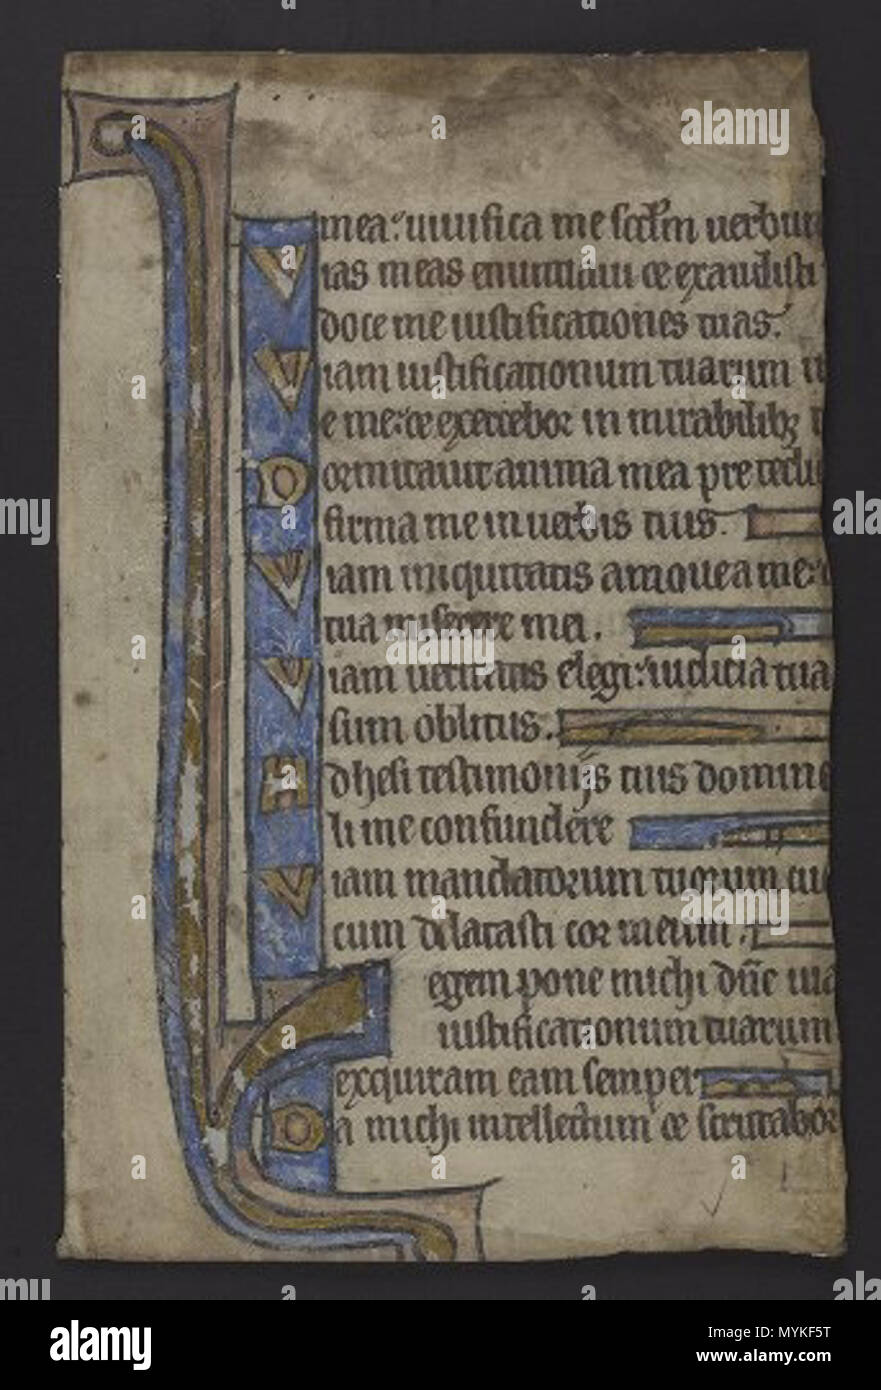 mea: uiuifica me scd'm uerbum
Vias meas enuntiaui et exaudisti
doce me iustificationes tuas.
Viam iustificationum tuarum
e me: et exercebor in mirabilib;
Dormitauit anima mea pre tedi
firma me in uerbis tuis.
Viam iniquitatis amoue a me:
tua miserere mei.
Viam ueritatis elegi: iudicia tua
sum oblitus.
Adhesi testimonijs tuis domine
li me confundere
Viam mandatorum tuorum cu
cum dilatasti cor meum.
Legem pone michi dñe uia
iustificationum tuarum
exquiram eam semper
Da michi intellectum et scrutabor
alamy
Image ID: MYKF5T
www.alamy.com